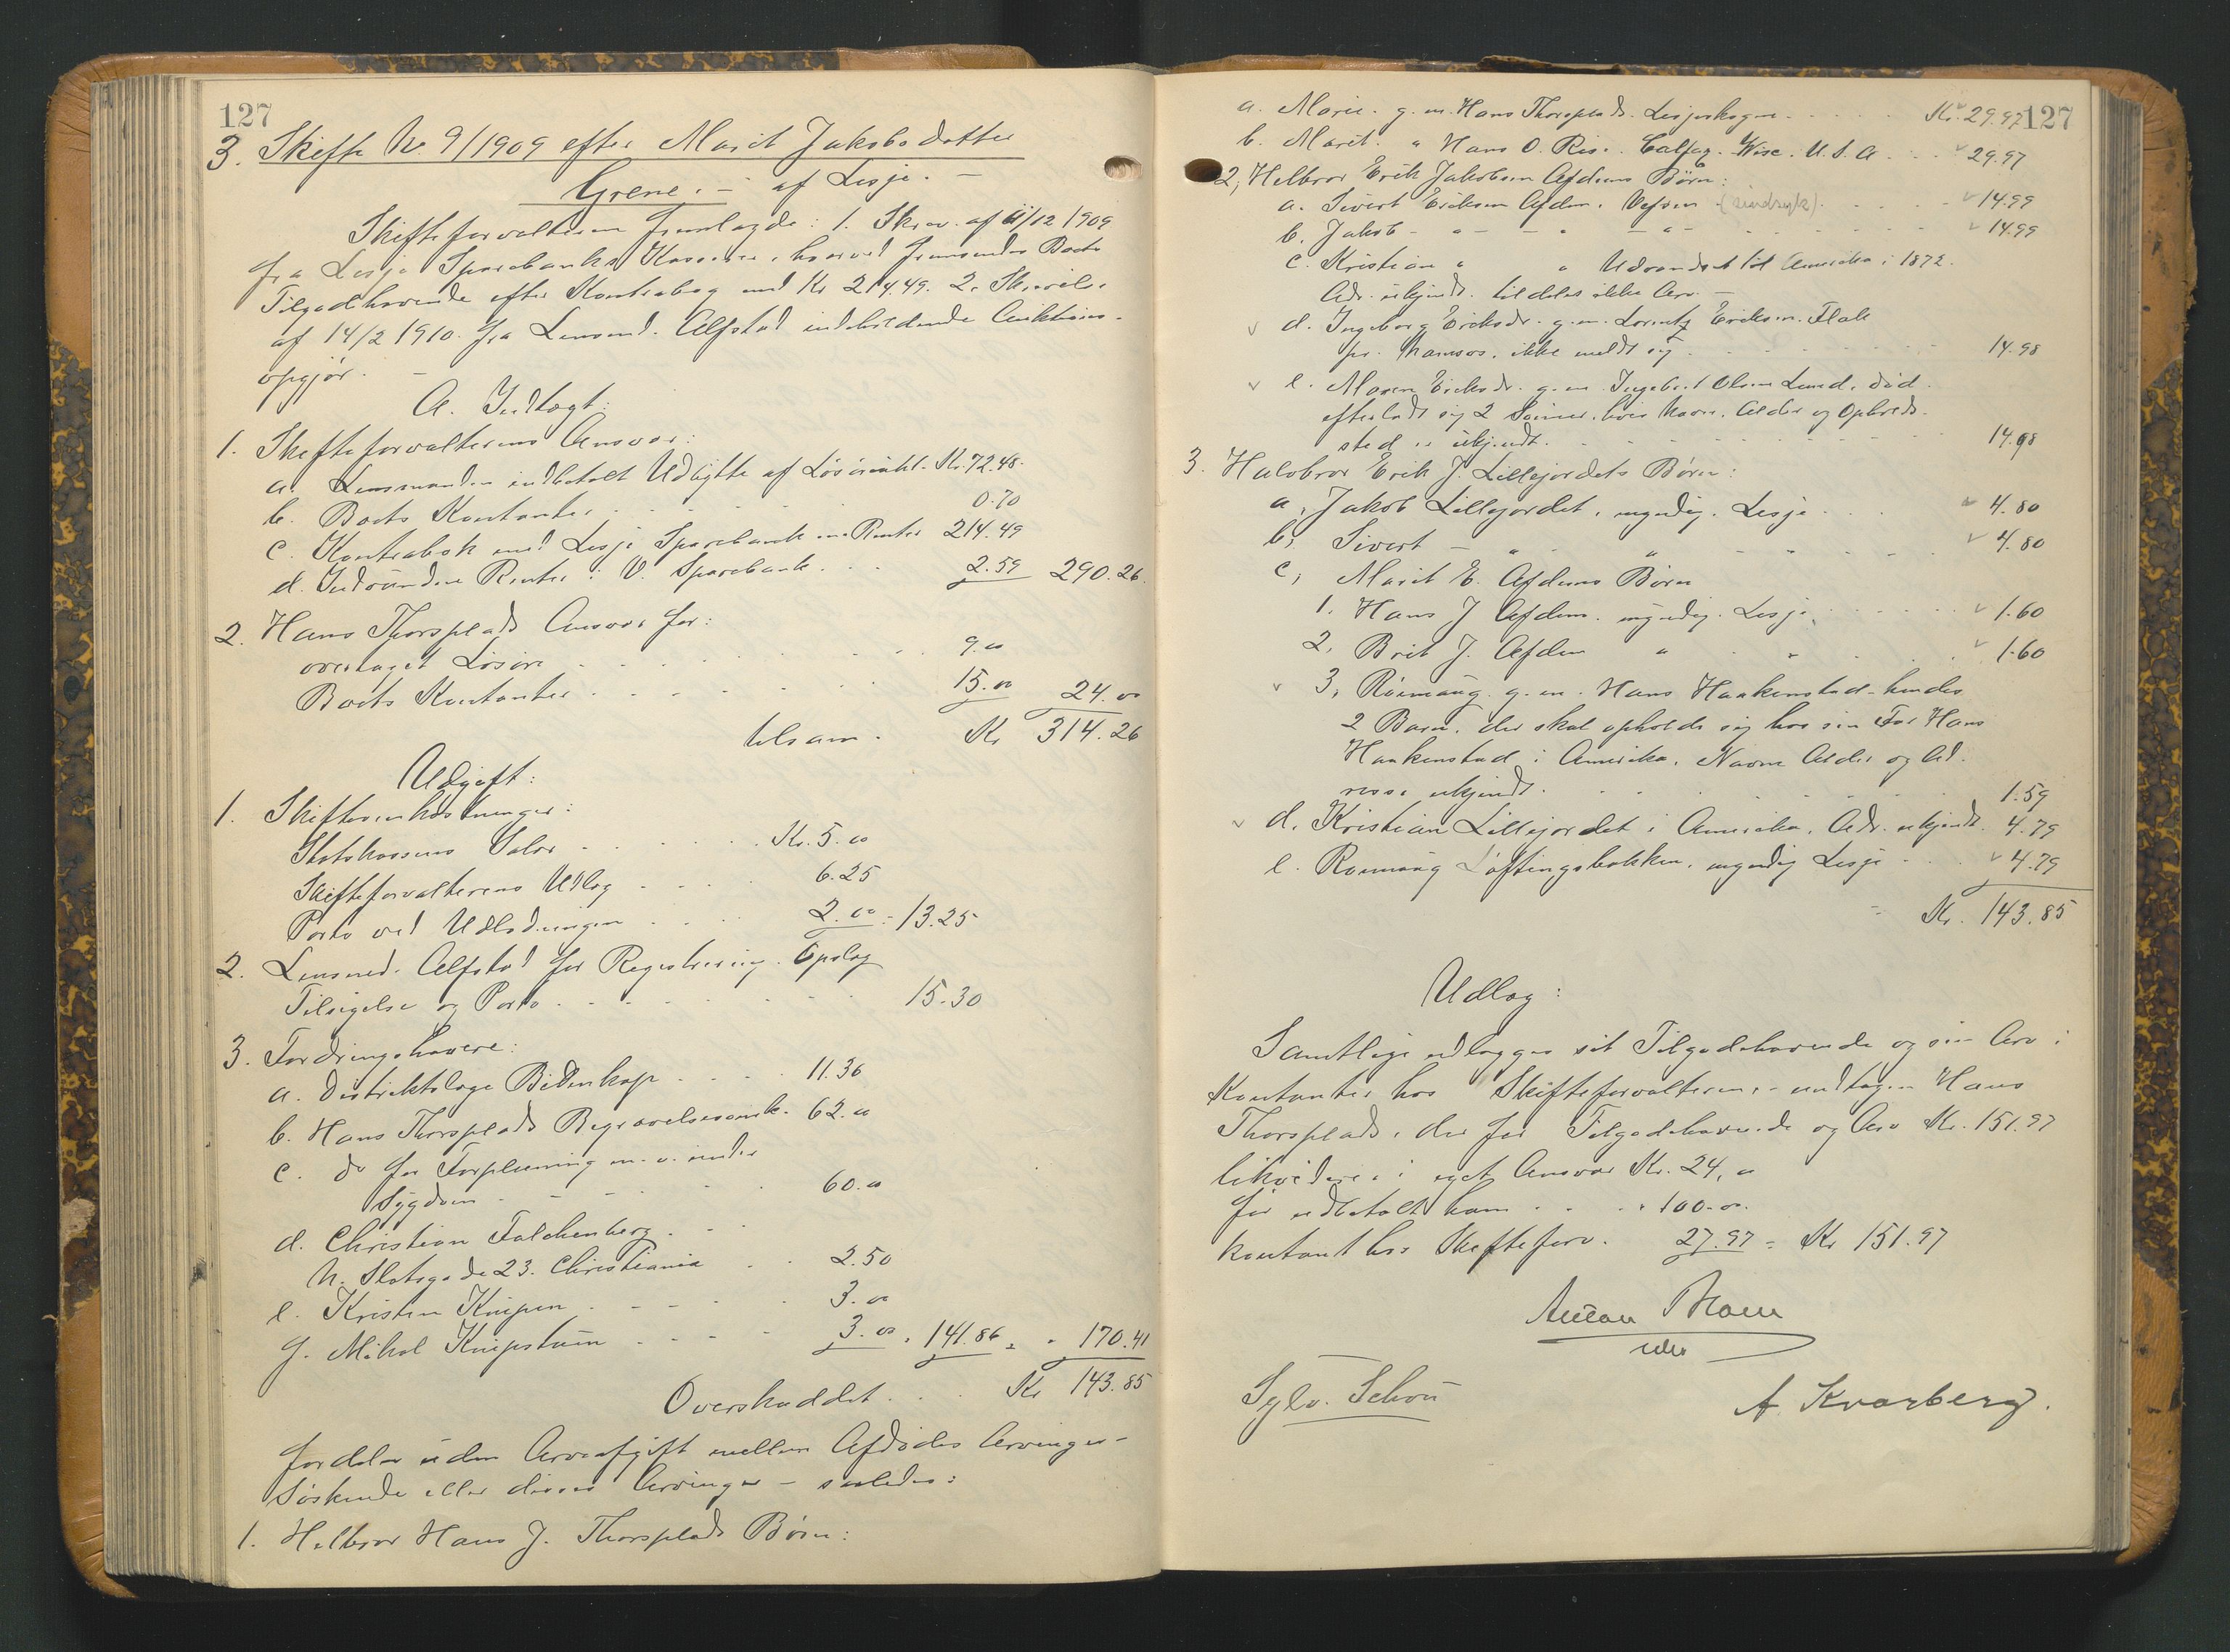 127
3. Skifte No. 9/1909 efter Marit Jakobsdatter
Grene. - af Lesje. -
Skifteforvalteren fremlagde: 1. Skriv. af 11/12 1909
fra Lesje Sparebanks Kasserer, hvorved fremsendes Boets
Tilgodehavende efter Kontrabog med Kr 214.49. 2. Skrivels.
af 14/2 1910 fra Lensmd. Alfstad indeholdende Auktions-
opgjør. -
A. Indtægt:
1. Skifteforvalterens Ansvar:
a. Lensmanden indbetalt Udbytte af Løsøreaukt. Kr. 72.48.
b. Boets Kontanter . . . . 0.70
c. Kontrabok med Lesje Sparebank m. Renter 214.49
d. Indvundne Renter i V. Sparebank . . . 2.59 290.26.
2. Hans Thorsplads Ansvar for:
overtaget Løsøre . . . . . 9.00
Boets Kontanter . . . . . 15.00 24.00
tilsam. Kr 314.26
Udgift:
1. Skifteomkostninger:
Statskassens Salær . . . . . Kr. 5.00
Skifteforvalterens Udlæg . . . . 6.25
Porto ved Udlodningen . . . 2.00 = 13.25
2. Lensmd. Alfstad for Registrering. Opslag
Tilsigelse og Porto . . . . . . 15.30
3. Fordringshavere:
a. Distriktslæge Bidenkap . . . . 11.36
b. Hans Thorsplads Begravelsesomk. 62.00
c. do for Forpleining m. v. under
Sygdom . . . . . . 60.00
d. Christian Falchenberg . . .
N. Slotsgade 23. Christiania . . 2.50
e. Kristen Knipen . . . . . 3.00
f. Mikal Knipstuen . . . . 3.00 . 141.86 = . 170.41
Overskuddet . . . Kr 143.85
fordeles uden Arveafgift mellem Afdødes Arvinger -
Søskende eller disses Arvinger - saaledes:
1. Helbror Hans J. Thorsplads Børn:
127
a. Marie. g. m. Hans Thorsplads. Lesjeskogen . . . . . Kr. 29.97
b. Marit. " Hans O. Rise. Colfax. Wisc. U.S.A. . . . 29.97
2, Helbror Erik Jakobsen Afdems Børn:
a. Sivert Eriksen Afdem. Vefsen . . . . 14.99
b. Jakob - " - - " - " - . . . . . 14.99
c. Kristian " " Udvandret til Amerika i 1872.
Adr. ukjendt. tildeles ikke Arv. -
d. Ingeborg Eriksdr. g. m. Lorentz Eriksen. Flak
pr. Namsos. ikke meldt sig . . . . . . 14.98
e. Maren Eriksdr. g. m. Ingebert Olsen Lund, død.
efterladt sig 2 Sønner, hvis Navn. Alder og Opholds-
sted er ukjendt. . . . . . . . 14.98
3. Halvbror Erik J. Lillejordets Børn:
a, Jakob Lillejordet, myndig. Lesje . . . 4.80
b, Sivert - " " - " - . . . 4.80
c, Marit E. Afdems Børn
1. Hans J Afdem. myndig. Lesje . . . . 1.60
2. Brit J. Afdem " . " . . . 1.60
3, Rønnaug. g. m. Hans Haakenstad - hendes
2 Barn, der skal opholde sig hos sin Far Hans
Haakenstad i Amerika. Navn Alder og Ad-
resse ukjendt. . . . . . . 1.59
d. Kristian Lillejordet i Amerika. Adr. ukjendt. 4.79
e. Rønnaug Løftingsbakken, myndig Lesje . . . 4.79
= Kr. 143.85
Udlæg:
Samtlige udlægges sit Tilgodehavende og sin Arv i
Kontanter hos Skifteforvalteren, - undtagen Hans
Thorsplads, der for Tilgodehavende og Arv Kr. 151.97
likvideres i eget Ansvar Kr. 24,00
før udbetalt ham . . . " 100.00.
kontant hos Skifteforv. 27.97 = Kr 151.97
Sylv. Schou
A Kvarberg.